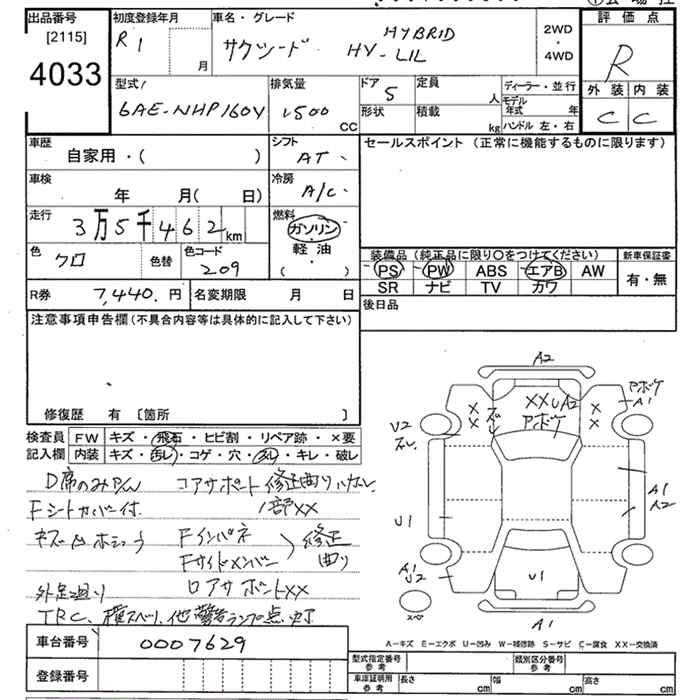 出品番号
[2115]
4033
初度登録年月
R1
月
車名・グレード
サクシード HYBRID
HY-LIL
2WD
・
4WD
評価点
R
外装 内装
C C
型式
6AE-NHP160V
排気量
1500
CC
ドア 5
形状
定員
人
積載
kg
ディーラー・並行
モデル年式 年
ハンドル 左・右
車歴
自家用・( )
シフト
AT
セールスポイント (正常に機能するものに限ります)
車検
年 月( 日)
冷房
A/C
走行
3万5千462km
燃料
ガソリン
軽油
( )
色
クロ
色替
色コード
209
装備品 (純正品に限り〇をつけてください)
PS PW ABS エアB AW
SR ナビ TV カワ
新車保証書
有・無
R券 7,440.円
名変期限 月 日
後日品
注意事項申告欄(不具合内容等は具体的に記入して下さい)
修復歴 有 [箇所 ]
検査員
記入欄
FW キズ・飛石・ヒビ割・リペア跡・×要
内装 キズ・汚レ・コゲ・穴・スレ・キレ・破レ
コアサポート修正曲り
一部XX
Fインパネ
Fサイドメンバー
修正
曲り
ロアサポートXX
TRC、横スベリ、他警告ランプ点灯
A2
XXUA2
アホ゛ケ
アホ゛ケ
A1
U2
U1
A1
A2
A1
U2
U1
A1
スペ
A-キズ E-エクボ U-凹み W-補修跡 S-サビ C-腐食 XX-交換済
車台番号 0007629
登録番号
型式指定番号
参考
類別区分番号
参考
車庫証明用
参考
長さ cm 幅 cm 高さ cm